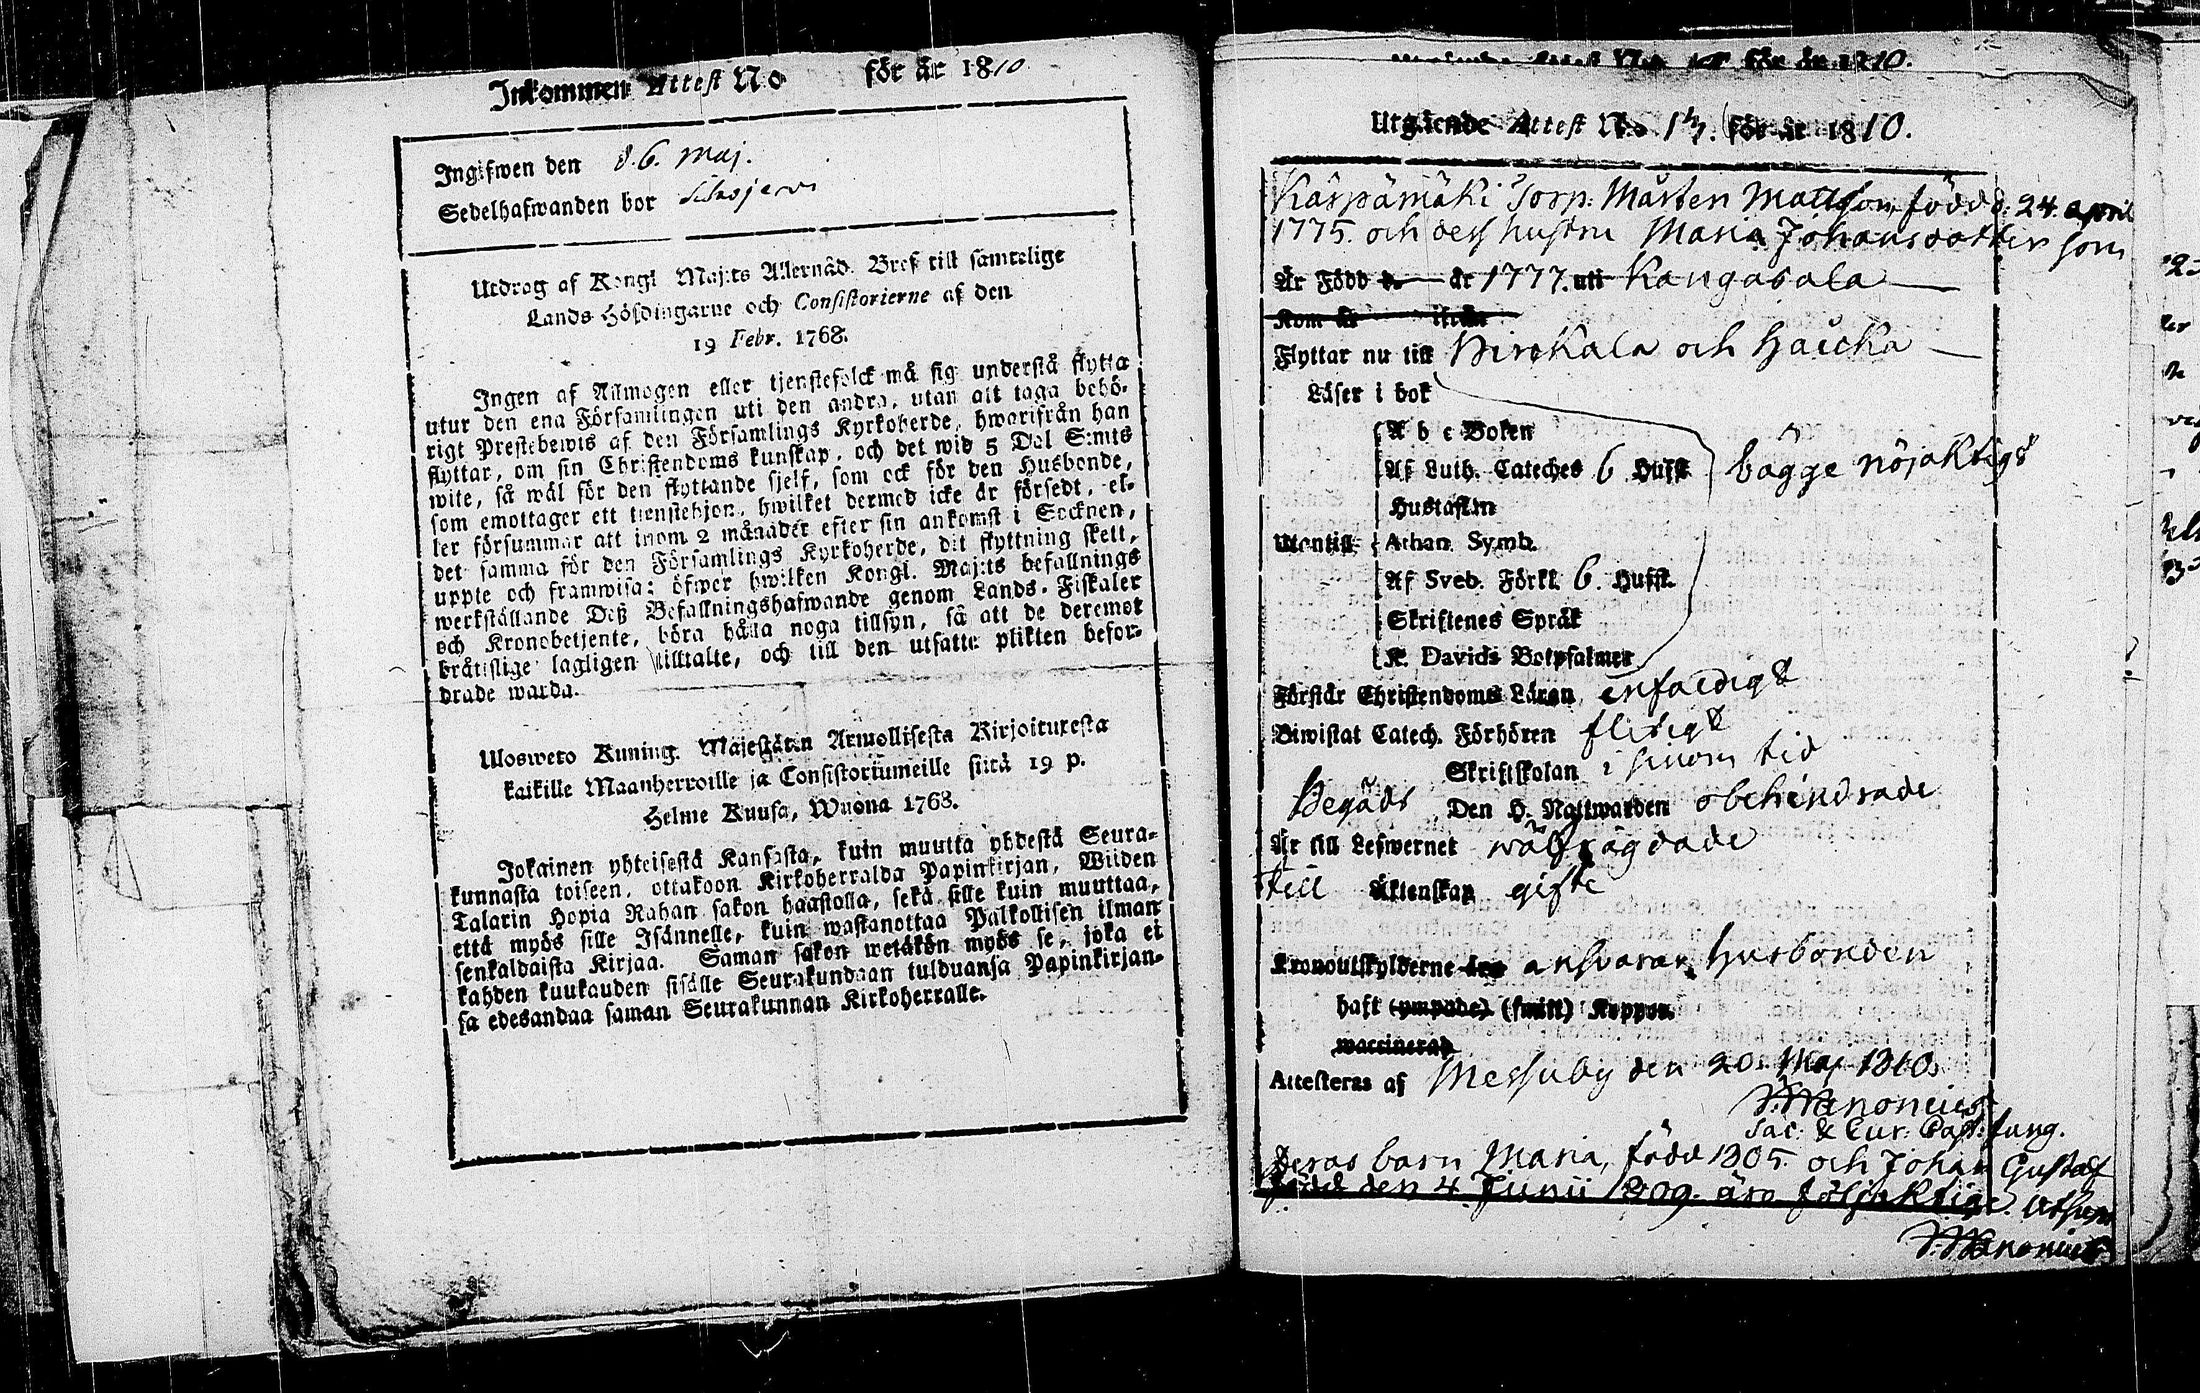 Inkommen Attest No för år 1810
Ingifwen den d. 6. Maj.
Sedelhafwanden bor
Utdrag af Kongl Maj:ts Allernåd. Bref till samtelige
Lands-Höfdingarne och Consistorierne af den
19 Febr. 1768.
Ingen af Allmogen eller tjenstefolck må sig understå flytta
utur den ena Församlingen uti den andra, utan att taga behö-
rigt Prestebewis af den Församlings Kyrkoherde, hwarifrån han
flyttar, om sin Christendoms kunskap, och det wid 5 Dal S:mts
wite, så wäl för den flyttande sjelf, som ock för den Husbonde,
som emottager ett tjenstehjon, hwilket dermed icke är försedt, el-
ler försummar att inom 2 månader efter sin ankomst i Socknen,
det samma för den Församlings Kyrkoherde, dit flyttning skett,
uppte och framwisa: öfwer hwilken Kongl. Maj:ts befallnings
werkställande Deß Befallningshafwande genom Lands-Fiskaler
och Kronobetjente, böra hålla noga tillsyn, så att de deremot
bråtslige lagligen tilltalte, och till den utsatte plikten befor-
drade warda.
Ulosweto Kuning. Majestätin Armollisesta Kirjoituxesta
kaikille Maanherroille ja Consistoriumeille siitä 19 p.
Helme Kuusa, Wuona 1768.
Jokainen yhteisestä Kansasta, kuin muutta yhdestä Seura-
kunnasta toiseen, ottakoon Kirkoherralda Papinkirjan, Wiiden
Talarin Hopia Rahan sakon haastolla, sekä sille kuin muuttaa,
että myös sille Isännelle, kuin wastanottaa Palkollisen ilman
senkaldaista Kirjaa. Saman sakon wetäkön myös se, joka ei
kahden kuukauden sisälle Seurakundaan tulduansa Papinkirjan-
sa edesandaa saman Seurakunnan Kirkoherralle.
för år 1810.
Utgående Attest No 17. för år 1810.
Kaspämäki Torp. Mårten Mattson, född d. 24. april
1775. och dess hustru Maria Johansdotter som
Är Född d. år 1777. uti Kangasala
Kom år ifrån
Flyttar nu till Birckala och Haicka
Läser i bok
A b c Boken
Af Luth. Cateches 6 Hufst. bägge nöjaktigt
Hustaflan
Utantill Athan. Symb.
Af Sveb. Förkl. 6. Hufst.
Skriftenes Språk
K. Davids Botpsalmer
Förstår Christendoms Läran enfaldigt
Biwistat Catech. Förhören flitigt
Skriftskolan i sinom tid
Begådt Den H. Nattwarden obehindrade
Är till Lefwernet wälfrägdade
till Äktenskap gifte
Kronoutskylderne äro ansvarar husbonden
haft (ympade) (smitt) Koppor.
waccinerad
Attesteras af Messuby den 20. Maj 1810.
Sac: & Cur: Past: fung.
Deras barn Maria, född 1805. och Johan Gustaf
född den 4 Junii 1809. äro följaktige. Utsupra